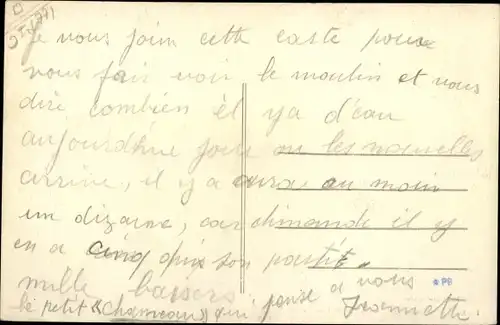 Je vous join cette carte pour
vous fair voir le moulin et vous
dire combien él y a d'eau
aujourdhue jour ou les nouvelles
arrive, il y a au moin
un dizaine, car dimande il y
en a cinq qui son partit.
mille baisers
le petit "chameau" qui panse a vous Jeannette
PB